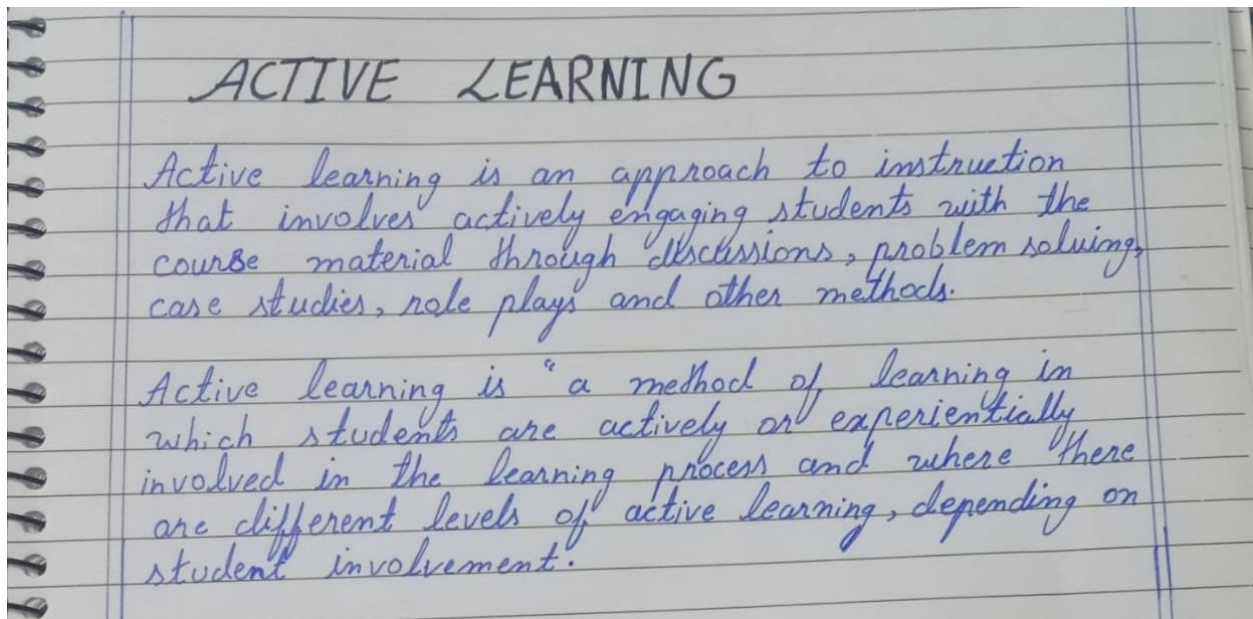 ACTIVE LEARNING
Active learning is an approach to instruction
that involves actively engaging students with the
course material through discussions, problem solving,
case studies, role plays and other methods.
Active learning is "a method of learning in
which students are actively or experientially
involved in the learning process and where there
are different levels of active learning, depending on
student involvement.